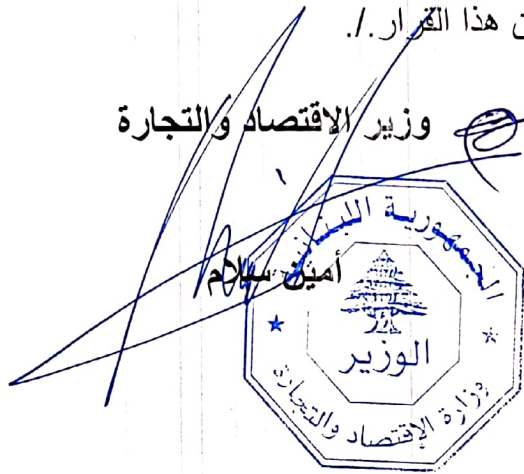 هذا القرار./.
وزير الاقتصاد والتجارة
أمين سلام
الجمهورية اللبنانية
الوزير
وزارة الإقتصاد والتجارة